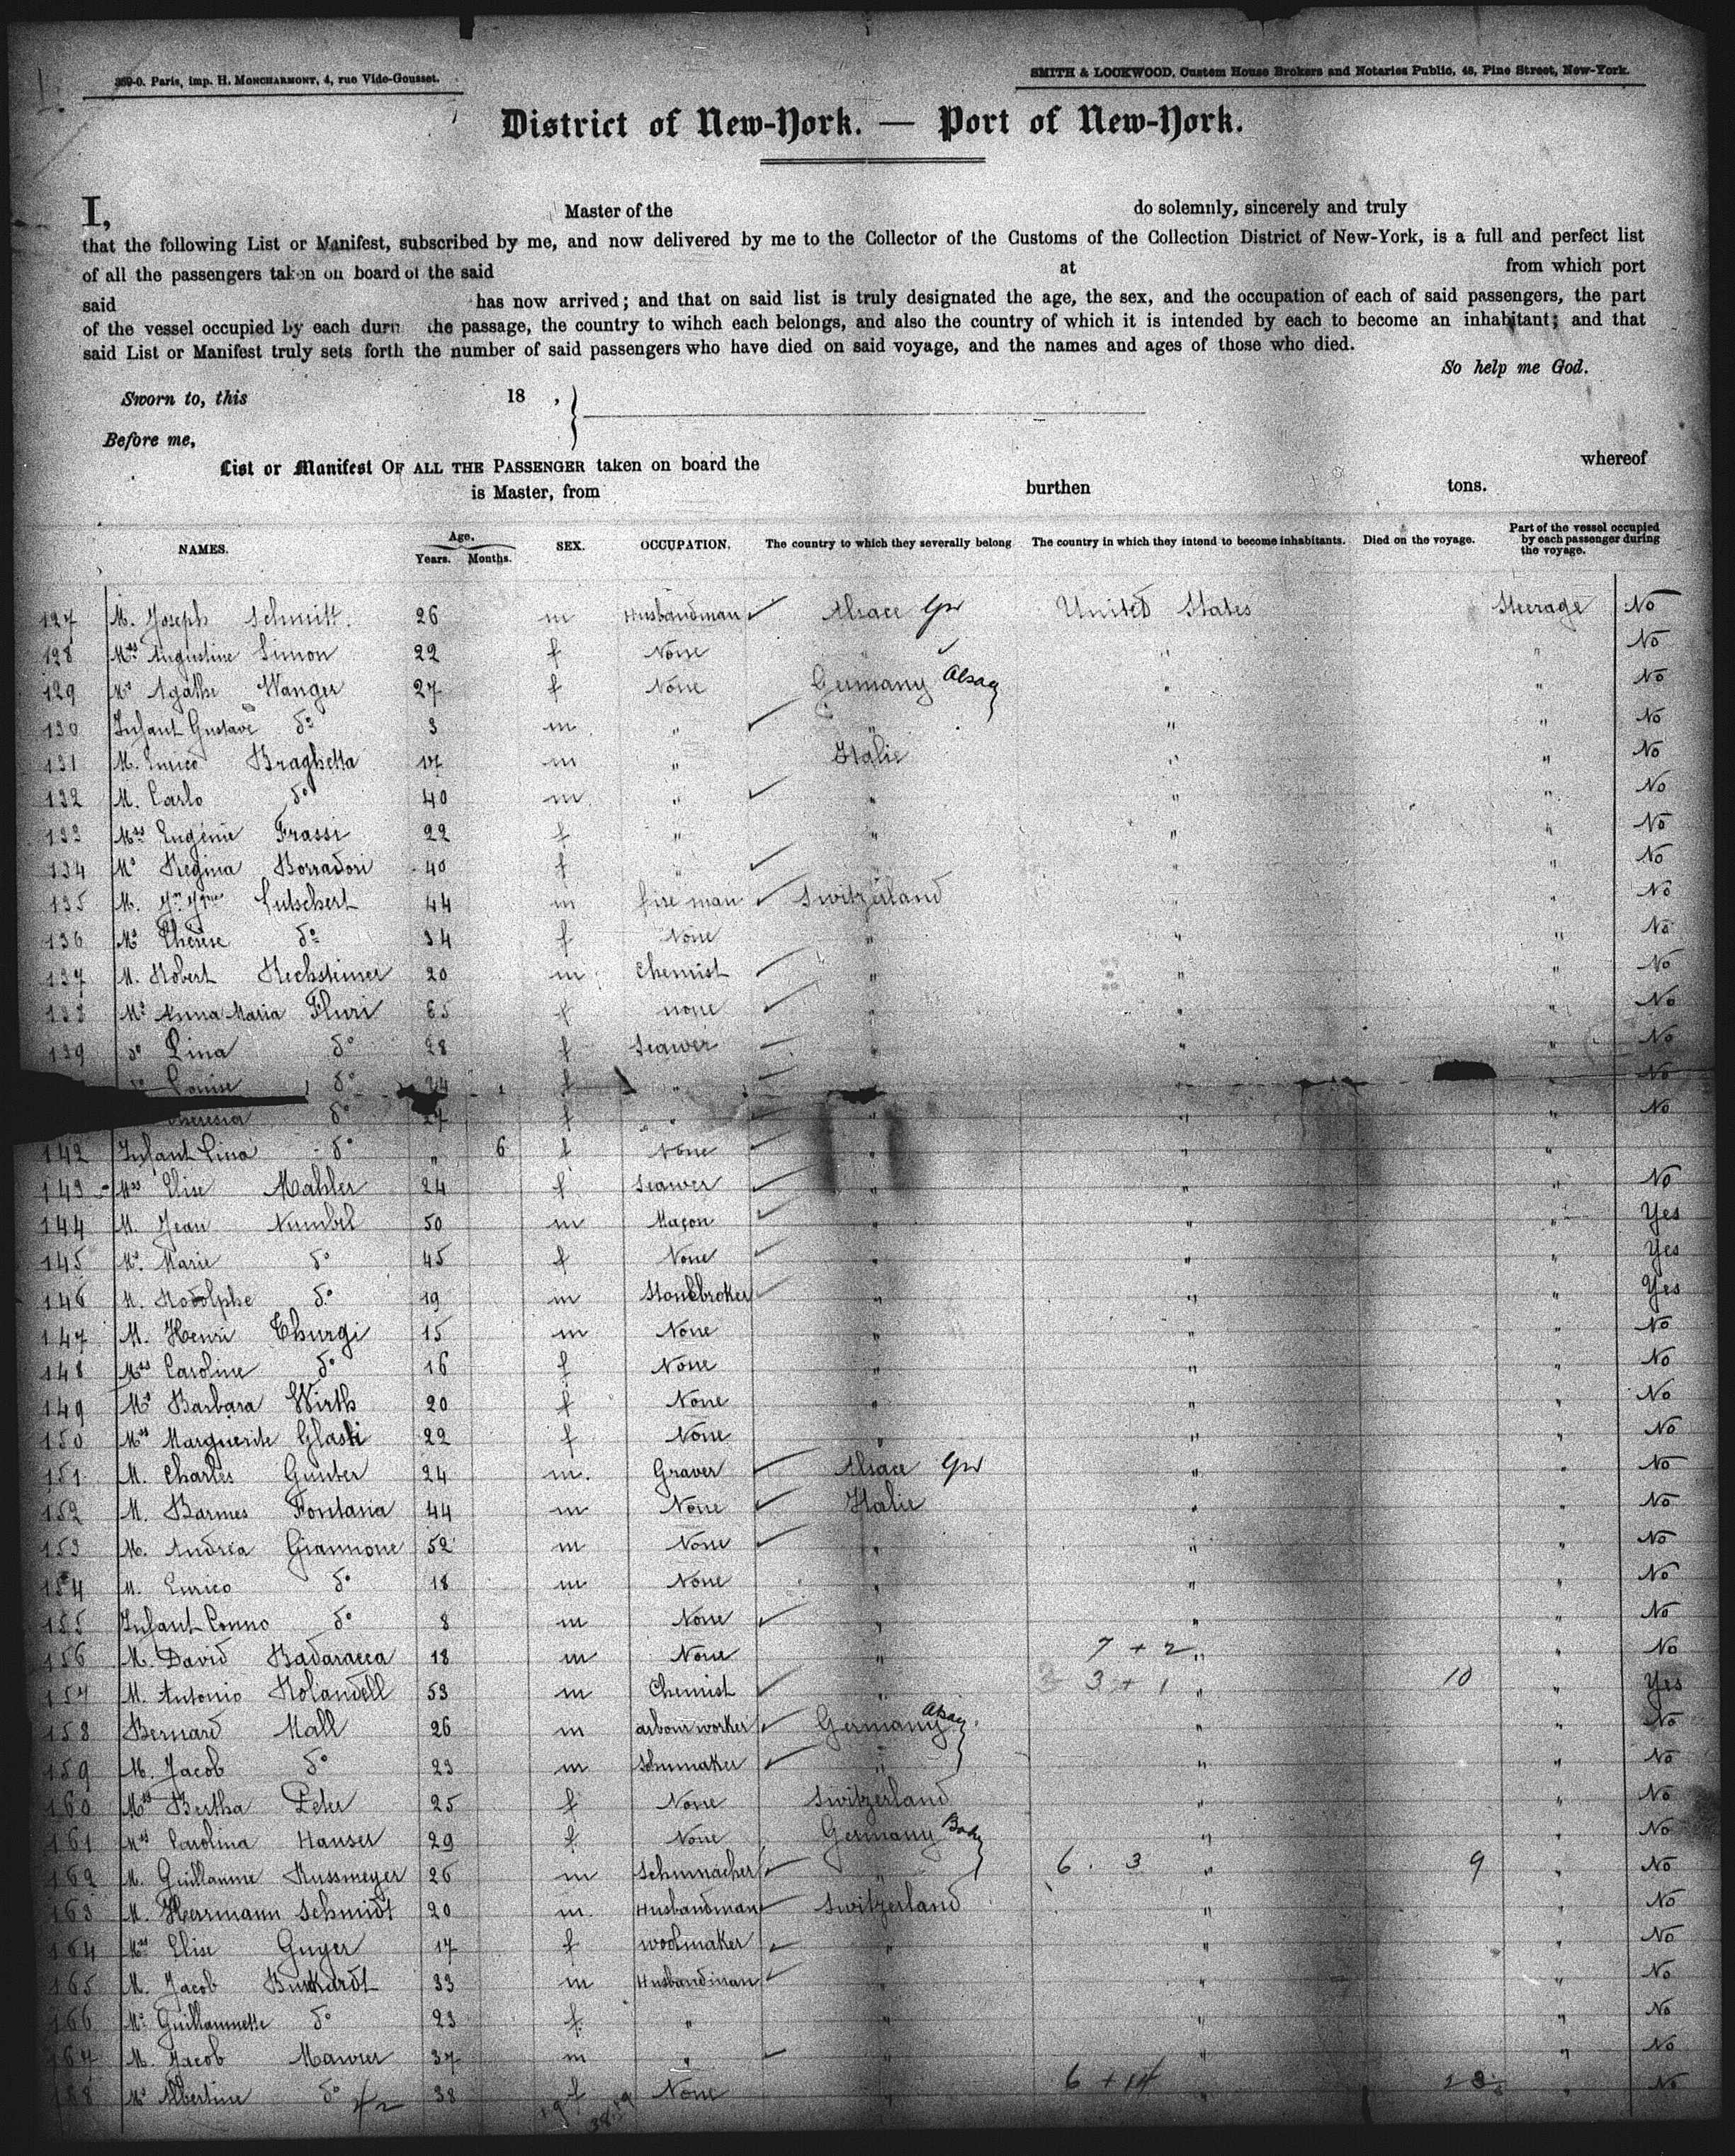 359-0. Paris, imp. H. MONCHARMONT, 4, rue Vide-Gousset.
SMITH & LOCKWOOD, Custom House Brokers and Notaries Public, 48, Pine Street, New-York.
District of New-York. — Port of New-York.
I, Master of the do solemnly, sincerely and truly
that the following List or Manifest, subscribed by me, and now delivered by me to the Collector of the Customs of the Collection District of New-York, is a full and perfect list
of all the passengers taken on board of the said at from which port
said has now arrived; and that on said list is truly designated the age, the sex, and the occupation of each of said passengers, the part
of the vessel occupied by each durn the passage, the country to wihch each belongs, and also the country of which it is intended by each to become an inhabitant; and that
said List or Manifest truly sets forth the number of said passengers who have died on said voyage, and the names and ages of those who died.
So help me God.
Sworn to, this 18 ,
Before me,
List or Manifest OF ALL THE PASSENGER taken on board the whereof
is Master, from burthen tons.
NAMES. Age. Years. Months. SEX. OCCUPATION. The country to which they severally belong The country in which they intend to become inhabitants. Died on the voyage. Part of the vessel occupied by each passenger during the voyage.
127 M. Joseph Schmitt. 26 m Husbandman Alsace United States Steerage No
128 Mss Augustine Simon 22 f None " " " No
129 Ms Agathe Wanger 27 f None Germany Alsac " " No
130 Infant Gustave do 3 m " " " " No
131 M. Enrico Braghetta 17 m " Italie " " No
132 M. Carlo do 40 m " " " " No
133 Mss Eugénie Frassi 22 f " " " " No
134 Ms Regina Borradori 40 f " " " " No
135 M. Lutschert 44 m fire man Switzerland " " No
136 Ms Thérèse do 34 f None " " " No
137 M. Robert Rechsteiner 20 m Chemist " " " No
138 Ms Anna Maria Fluri 65 f none " " " No
139 do Lina do 28 f Seawer " " " No
do Louise do 24 f " " " " No
Theresia do 27 f " " " " No
142 Infant Lina do " 6 f None " " "
143 Mss Elise Mahler 24 f Seawer " " " No
144 M. Jean 50 m Maçon " " " Yes
145 Ms. Marie do 45 f None " " " Yes
146 M. Rodolphe do 19 m Stonebroker " " " Yes
147 M. Henri Thurgi 15 m None " " " No
148 Mss Caroline do 16 f None " " " No
149 Ms Barbara Wirth 20 f None " " " No
150 Mss Marguerite 22 f None " " " No
151 M. Charles Gunter 24 m. Graver Alsace " " No
152 M. Barmes Fontana 44 m None Italie " " No
153 M. Andréa Giannone 52 m None " " " No
154 M. Enrico do 18 m None " " " No
155 Infant do 8 m None " " " No
156 M. David Badaracca 18 m None " 7 + 2 " " No
157 M. Antonio 53 m Chemist " 3 + 1 " 10 " Yes
158 Bernard Mall 26 m arbour worker Germany Alsac " " No
159 M. Jacob do 23 m Schumaker " " " No
160 Mss Bertha Peter 25 f None Switzerland " " No
161 Mss Carolina Hauser 29 f. None Germany " " No
162 M. Guillaume Hussmeyer 26 m Schumacher " 6. 3 " 9 " No
163 M. Herrmann Schmidt 20 m. Husbandman Switzerland " " No
164 Mss Elise Guyer 17 f woolmaker " " " No
165 M. Jacob Burkardt 33 m Husbandman " " " No
166 Ms Guillaumette do 23 f. " " " " No
167 M. Jacob Maurer 37 m " " " " No
168 Ms Albertine do 38 f None " 6 + 14 " " No